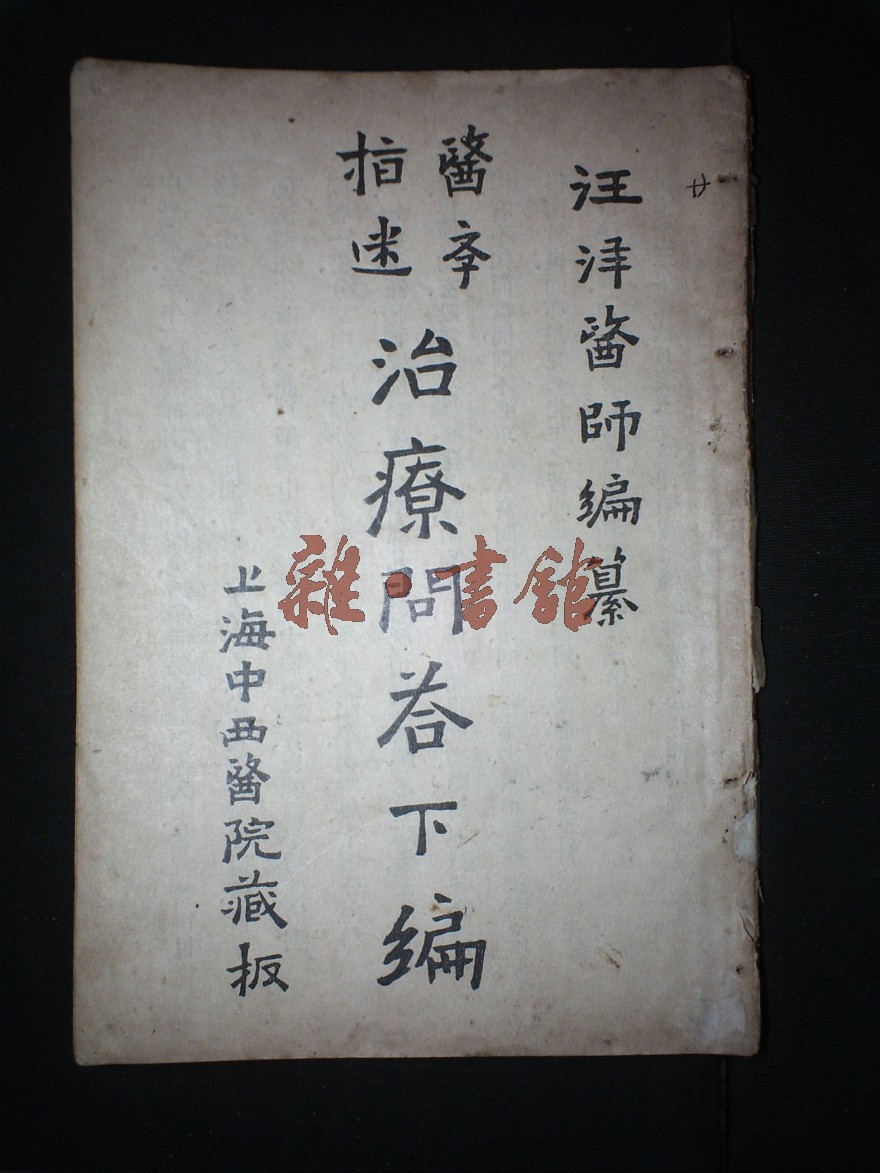 汪洋醫師編纂
醫斈
指迷
治療問荅下編
上海中西醫院藏板
雜·書館